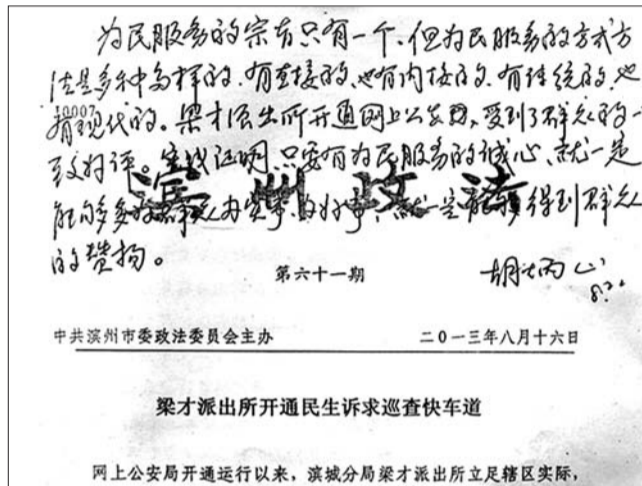 为民服务的宗旨只有一个、但为民服务的方式方
法是多种多样的、有直接的、也有间接的、有传统的、也
10007
有现代的。梁才派出所开通网上公安局、受到了群众的一
致好评。实践证明、只要有为民服务的诚心、就一定
滨州政法
能够多为群众办实事、办好事、就一定能够得到群众
的赞扬。
第六十一期
胡炳山
8.20
中共滨州市委政法委员会主办
二〇一三年八月十六日
梁才派出所开通民生诉求巡查快车道
网上公安局开通运行以来，滨城分局梁才派出所立足辖区实际，